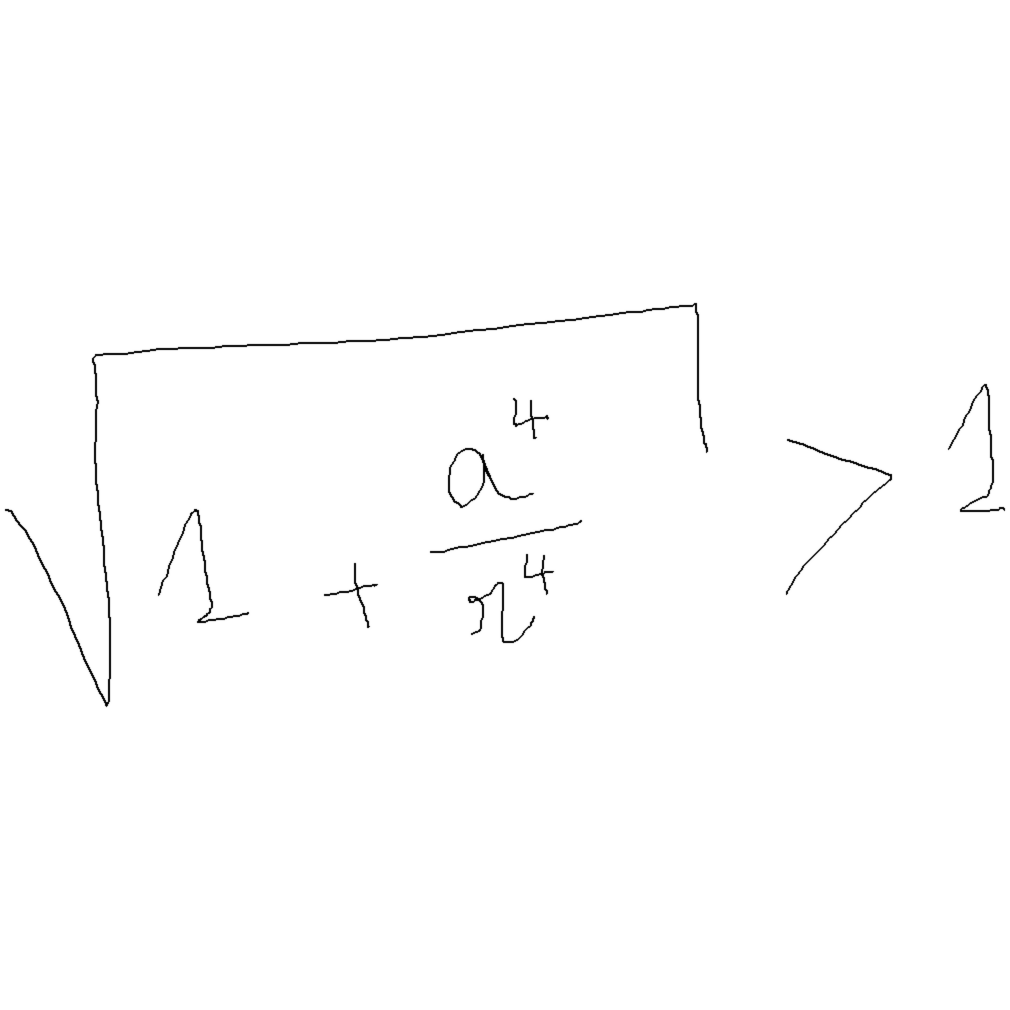 \sqrt{1 + \frac{a^4}{r^4}} > 1